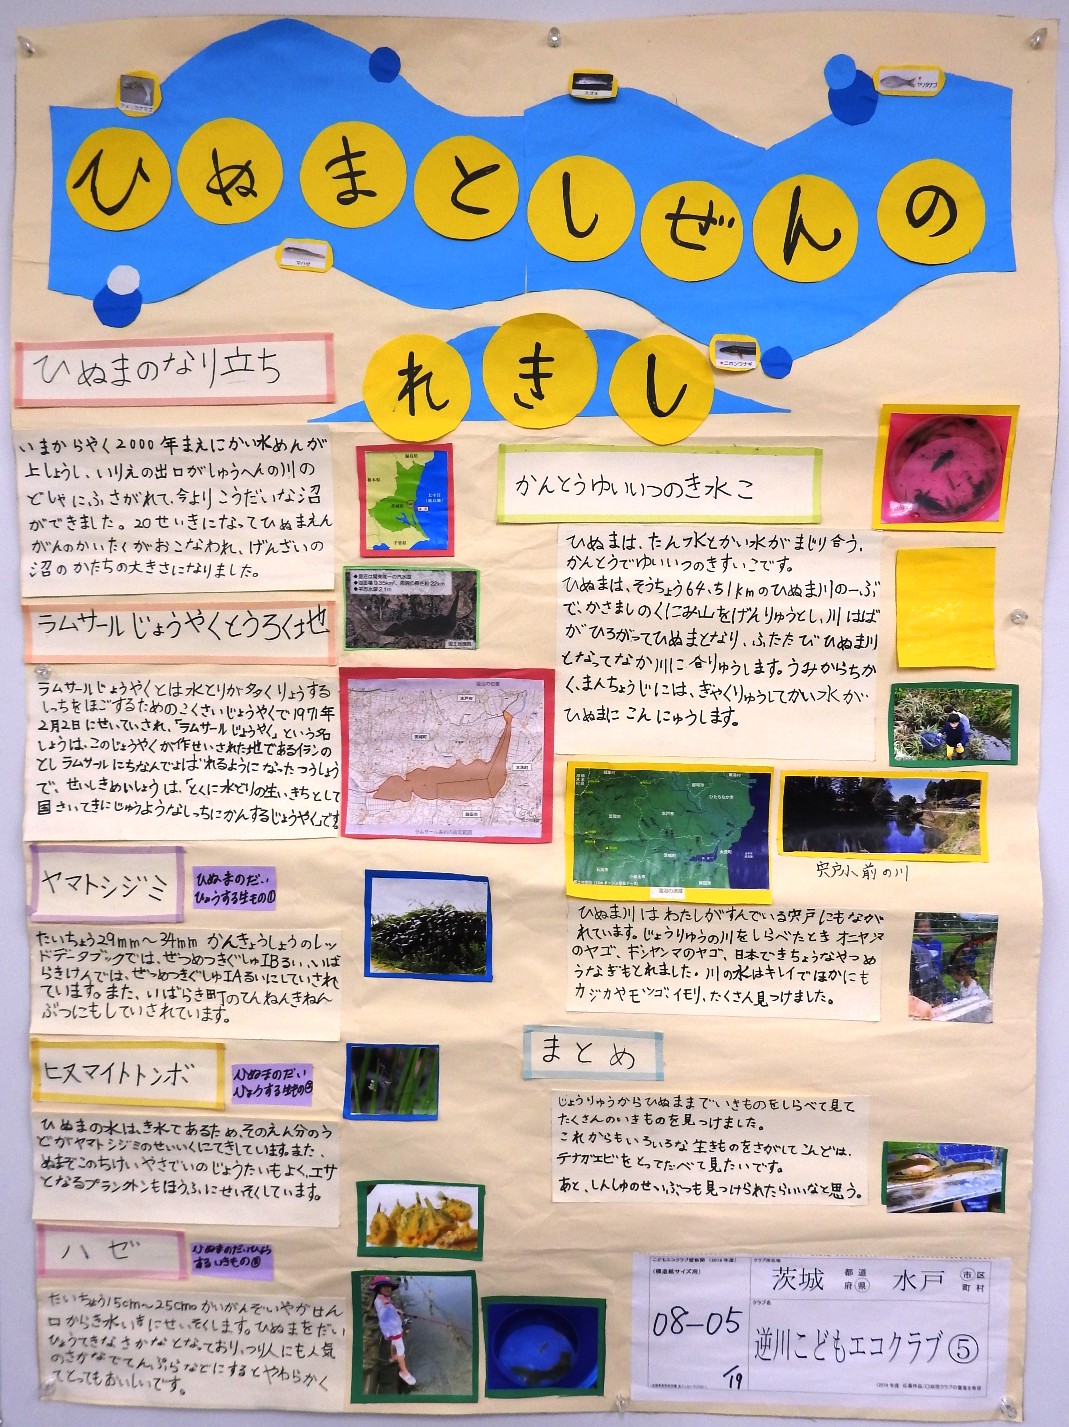 ひぬまとしぜんの
れきし
ひぬまのなり立ち
いまからやく2000年まえにかい水めんが
上しょうし、いりえの出口がしゅうへんの川の
どしゃにふさがれて、今よりこうだいな沼
ができました。20せいきになってひぬまえん
がんのかいたくがおこなわれ、げんざいの
沼のかたちの大きさになりました。
ラムサールじょうやくとうろく地
ラムサールじょうやくとは水とりが多くりようする
しっちをほごするためのこくさいじょうやくで1971年
2月2日にせいていされ、「ラムサールじょうやく」という名
しょうは、このじょうやくが作せいされた地であるイランの
とし ラムサールにちなんでよばれるようになったつうしょう
で、せいしきめいしょうは、「とくに水どりの生いきちとして
国さいてきにじゅうようなしっちにかんするじょうやく」です
ヤマトシジミ
ひぬまのだい
ひょうする生もの①
たいちょう29mm〜34mm かんきょうしょうのレッ
ドデータブックでは、ぜつめつきぐしゅIBるい、いば
らきけんでは、ぜつめつきぐしゅIAるいにしていされ
ています。また、いばらき町のてんねんきねん
ぶつにもしていされています。
ヒヌマイトトンボ
ひぬまのだい
ひょうする生もの②
ひぬまの水は、き水であるため、そのえん分のう
どがヤマトシジミのせいいくにてきしています。また、
ぬまぞこのちけいやさでいのじょうたいもよく、エサ
となるプランクトンもほうふにせいそくしています。
ハゼ
ひぬまのだいひょう
するいきもの③
たいちょう15cm〜25cm。かいがんぞいやかせん
口からき水いきにせいそくします。ひぬまをだい
ひょうてきなさかなとなっており、つり人にも人気
のさかなでてんぷらなどにするとやわらかく
てとってもおいしいです。
かんとうゆいいつのき水こ
ひぬまは、たん水とかい水がまじり合う、
かんとうでゆいいつのきすいこです。
ひぬまは、そうちょう64.51kmのひぬま川の一ぶ
で、かさましのくにみ山をげんりゅうとし、川はば
がひろがってひぬまとなり、ふたたびひぬま川
となってなか川に合りゅうします。うみからちか
く、まんちょうじには、ぎゃくりゅうしてかい水が
ひぬまにこんにゅうします。
宍戸小前の川
ひぬま川はわたしがすんでいる宍戸にもなが
れています。じょうりゅうの川をしらべたときオニヤンマ
のヤゴ、ギンヤンマのヤゴ、日本できちょうなやつめ
うなぎもとれました。川の水はキレイでほかにも
カジカやモツゴ、イモリ、たくさん見つけました。
まとめ
じょうりゅうからひぬままでいきものをしらべて見て
たくさんのいきものを見つけました。
これからもいろいろな生きものをさがしてこんどは、
テナガエビをとってたべて見たいです。
あと、しんしゅのせいぶつも見つけられたらいいなと思う。
マハゼ
ニホンウナギ
ラムサール条約の登録範囲
(模造紙サイズ用)
クラブ所在地
茨城 都道府県 水戸 市区町村
クラブ名
08-05
逆川こどもエコクラブ⑤
/19